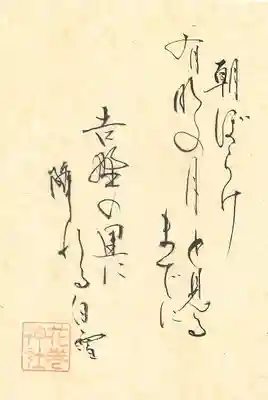 朝ぼらけ
有明の月と見る
までに
吉野の里に
降れる白雪